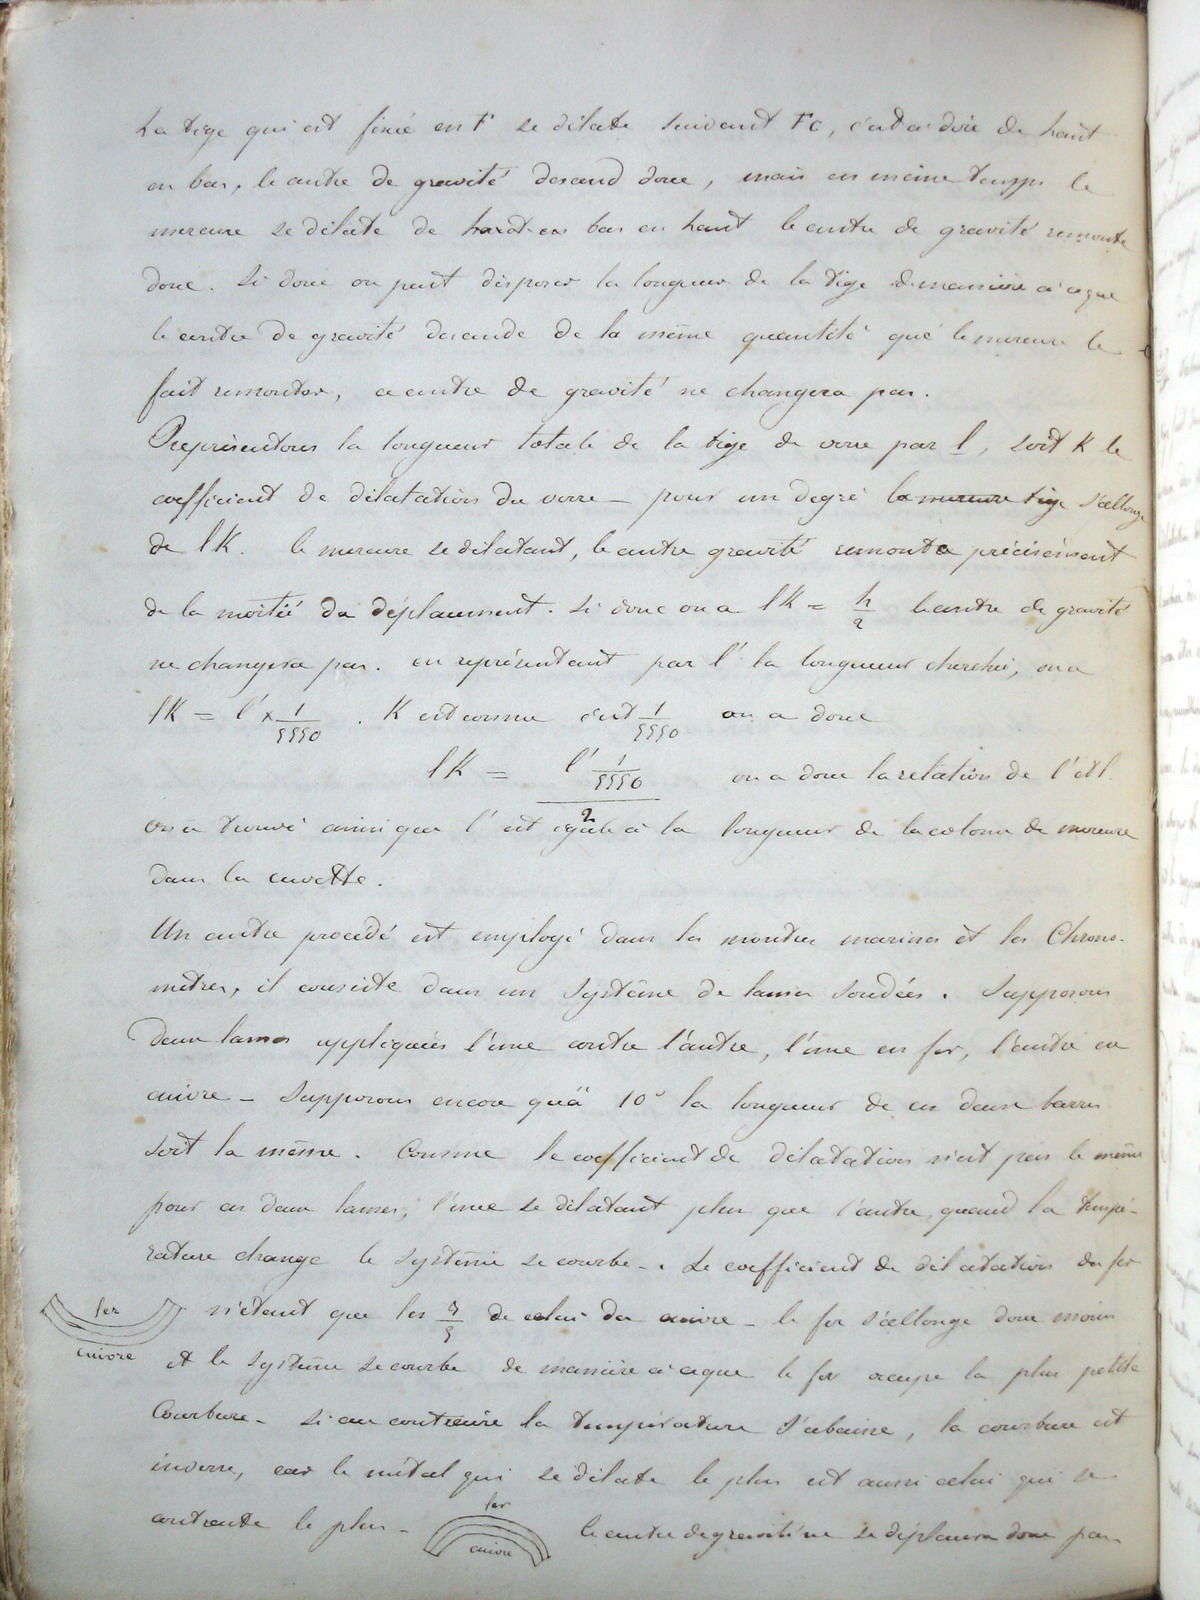 La tige qui est fixée en F se dilate suivant FC, c'est à dire de haut
en bas, le centre de gravité descend donc, mais en même temps le
mercure se dilate de haut en bas en haut le centre de gravité remonte
donc. Si donc on peut disposer la longueur de la tige de manière à ce que
le centre de gravité descende de la même quantité que le mercure le
fait remonter, ce centre de gravité ne changera pas.
Représentons la longueur totale de la tige de verre par l, soit K le
coefficient de dilatation du verre – pour un degré la mercure tige s'allonge
de lK. le mercure se dilatant, le centre gravité remonte précisément
de la moitié du déplacement. Si donc on a lK = h/2 le centre de gravité
ne changera pas. en représentant par l' la longueur cherchée, on a
lK = l' × 1/5550 . K est connu c'est 1/5550 on a donc
lK = l' 1/5550 / 2 on a donc la relation de l' et l.
On a trouvé ainsi que l' est égale à la longueur de la colonne de mercure
dans la cuvette.
Un autre procédé est employé dans les montres marines et les Chrono-
mètres, il consiste dans un système de lames soudées. Supposons
Deux lames appliquées l'une contre l'autre, l'une en fer, l'autre en
cuivre – Supposons encore qu'à 10° la longueur de ces deux barres
soit la même. Comme le coefficient de dilatation n'est pas le même
pour ces deux lames, l'une se dilatant plus que l'autre, quand la tempé-
rature change le système se courbe –. Le coefficient de dilatation du fer
fer
n'étant que les 3/5 de celui du cuivre – le fer s'allonge donc moins
cuivre
et le système se courbe de manière à ce que le fer occupe la plus petite
Courbure – Si au contraire la température s'abaisse, la courbure est
inverse, car le métal qui se dilate le plus est aussi celui qui se
contracte le plus –
fer
cuivre
le centre de gravité ne se déplacera donc pas